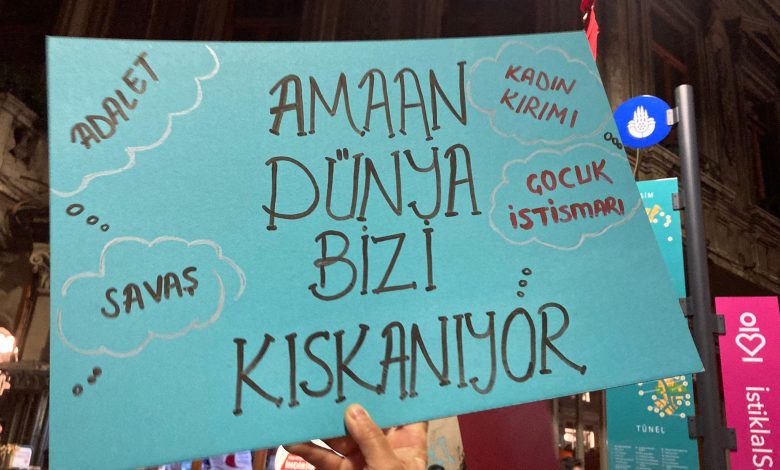 ADALET
AMAAN
DÜNYA
BİZİ
KISKANIYOR
KADIN
KIRIMI
ÇOCUK
İSTİSMARI
SAVAŞ
TÜNEL
istiklalS